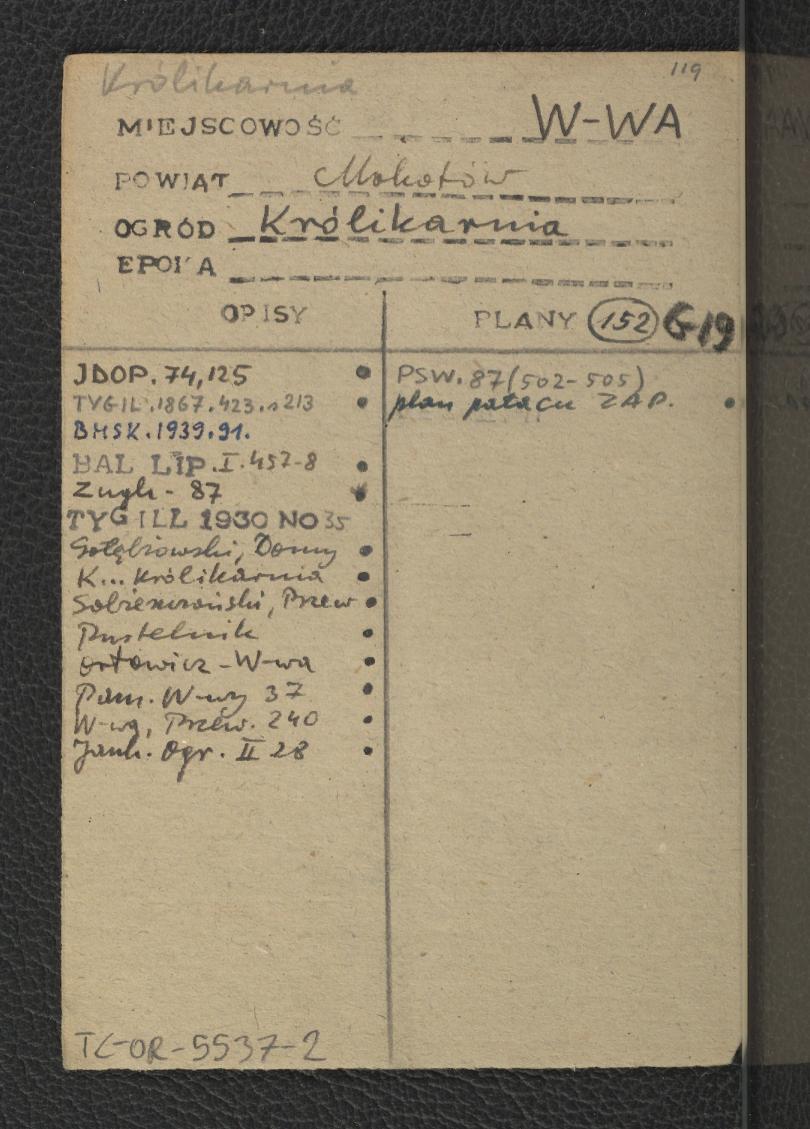 119
Królikarnia
MIEJSCOWOŚĆ W-WA
POWIAT Mokotów
OGRÓD Królikarnia
EPOKA
OPISY
PLANY 152 G19
JDOP. 74,125
TYGIL.1867.423.s213
BHSK.1939.91.
BAL LIP.I.457-8
Zugk- 87
TYG ILL 1930 NO 35
Gołębiowski, Domy
K... Królikarnia
Sobieszczański, Przew
Pustelnik
Orłowicz - W-wa
Pam. W-wy 37
W-wa, Przew. 240
Jank. Ogr. II 28
PSW. 87(502-505)
plan pałacu ZAP.
TZ-OR-5537-2